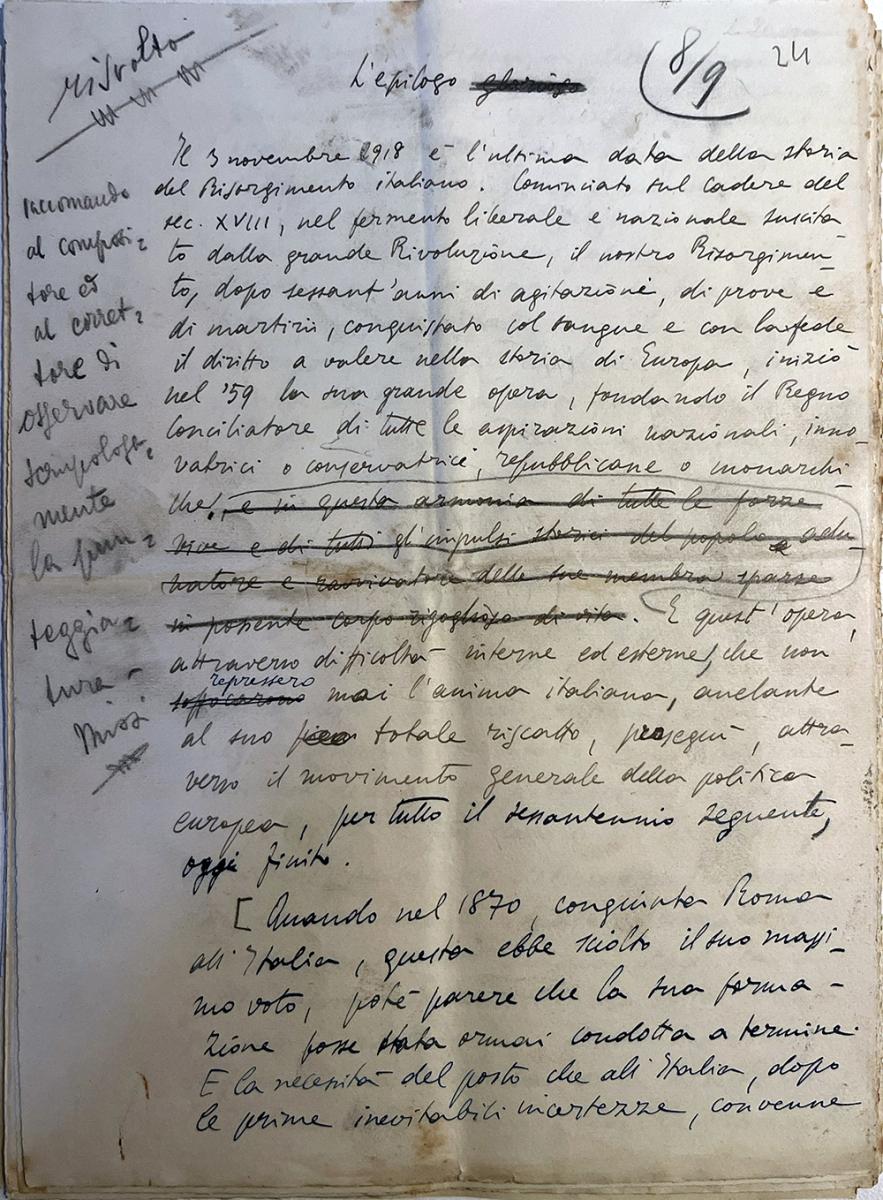 risvolto
L'epilogo glorioso
8/9
24
raccomando
al composi=
tore ed
al corret=
tore di
osservare
scrupolosa=
mente
la pun=
teggia=
tura -
Il 3 novembre 1918 è l'ultima data della storia
del Risorgimento italiano. Cominciato sul cadere del
sec. XVIII, nel fermento liberale e nazionale suscita-
to dalla grande Rivoluzione, il nostro Risorgimen-
to, dopo sessant'anni di agitazioni, di prove e
di martirii, conquistato col sangue e con la fede
il diritto a valere nella storia di Europa, iniziò
nel '59 la sua grande opera, fondando il Regno
conciliatore di tutte le aspirazioni nazionali, inno-
vatrici o conservatrici, repubblicane o monarchi-
che, e in questa armonia di tutte le forze
vive e di tutti gl'impulsi storici del popolo e adu-
natore e ravvivatore delle sue membra sparse
in possente corpo rigoglioso di vita. E quest'opera,
attraverso difficoltà interne ed esterne, che non
repressero
soffocarono mai l'anima italiana, anelante
al suo totale riscatto, proseguì, attra-
verso il movimento generale della politica
europea, per tutto il sessantennio seguente,
oggi finito.
[Quando nel 1870, conquista Roma
all'Italia, questa ebbe sciolto il suo massi-
mo voto, poté parere che la sua forma-
zione fosse stata ormai condotta a termine.
E la necessità del posto che all'Italia, dopo
le prime inevitabili incertezze, convenne